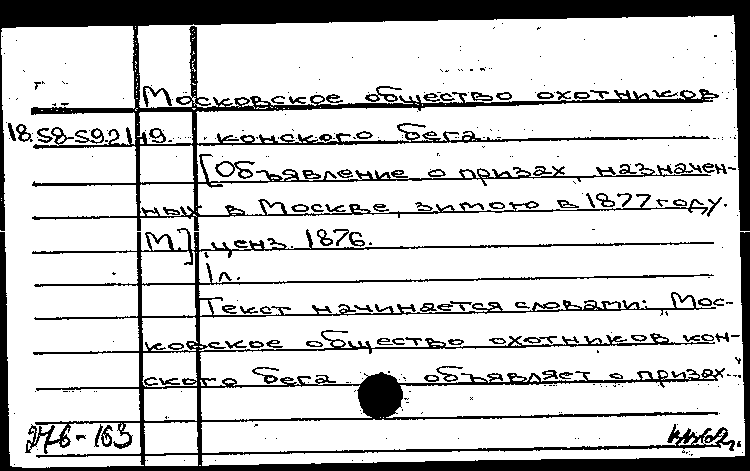 Московское общество охотников
конского бега
[Объявление о призах, назначен-
ных в Москве, зимою в 1877 году.
М.], ценз. 1876.
1 л.
Текст начинается словами: „Мос-
ковское общество охотников кон-
ского бега объявляет о призах...
276-163